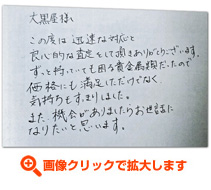 大黒屋様
この度は迅速な対応と
良心的な査定をして頂きありがとうございます。
ずっと持っていても困る貴金属類だったので
価格にも満足しただけでなく
気持ちもすっきりしました。
また機会がありましたらお世話に
なりたいと思います。
画像クリックで拡大します